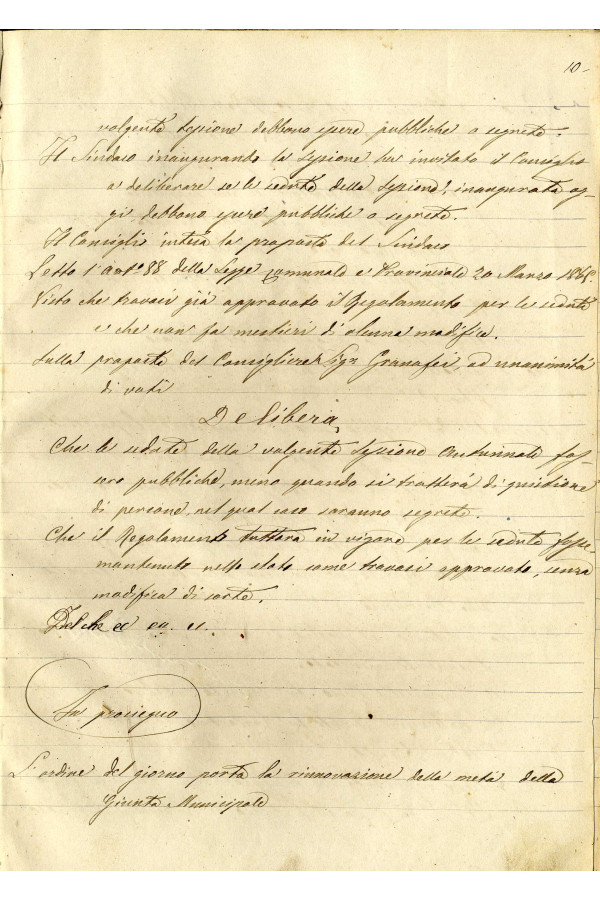 10-
volgente sessione debbano essere pubbliche o segrete.
Il Sindaco inaugurando la sessione ha invitato il Consiglio
a deliberare se le sedute della sessione, inaugurata og-
gi debbano essere pubbliche o segrete.
Il Consiglio intesa la proposta del Sindaco
Letto l'art.º 88 della Legge Comunale e Provinciale 20 Marzo 1865.
Visto che trovasi già approvato il Regolamento per le sedute
e che non fa mestieri di alcuna modifica.
Sulla proposta del Consigliere Sigr Granafei, ad unanimità
di voti
Delibera,
Che le sedute della volgente sessione autunnale fos-
sero pubbliche, meno quando si tratterà di quistione
di persone, nel qual caso saranno segrete.
Che il Regolamento tuttora in vigore per le sedute fosse
mantenuto nello stato come trovasi approvato, senza
modifica di sorta.
Del che ec ec. ec.
In prosieguo
L'ordine del giorno porta la rinnovazione della metà della
Giunta Municipale